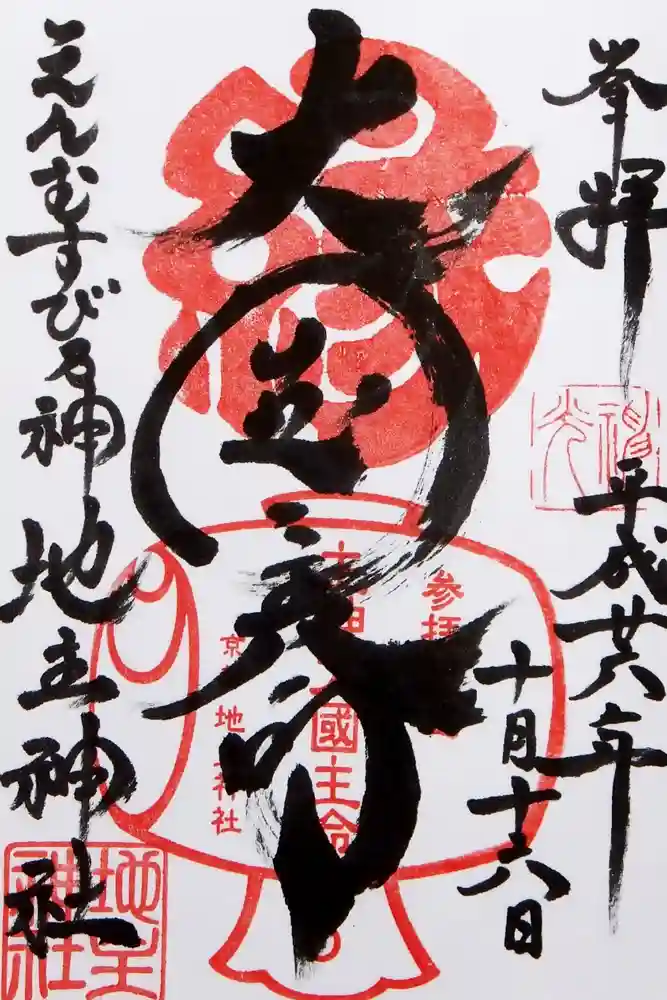 奉拝
平成廿六年
十月十六日
大国主命
参拝
國主命
京
地主神社
えんむすびの神 地主神社
地主神社